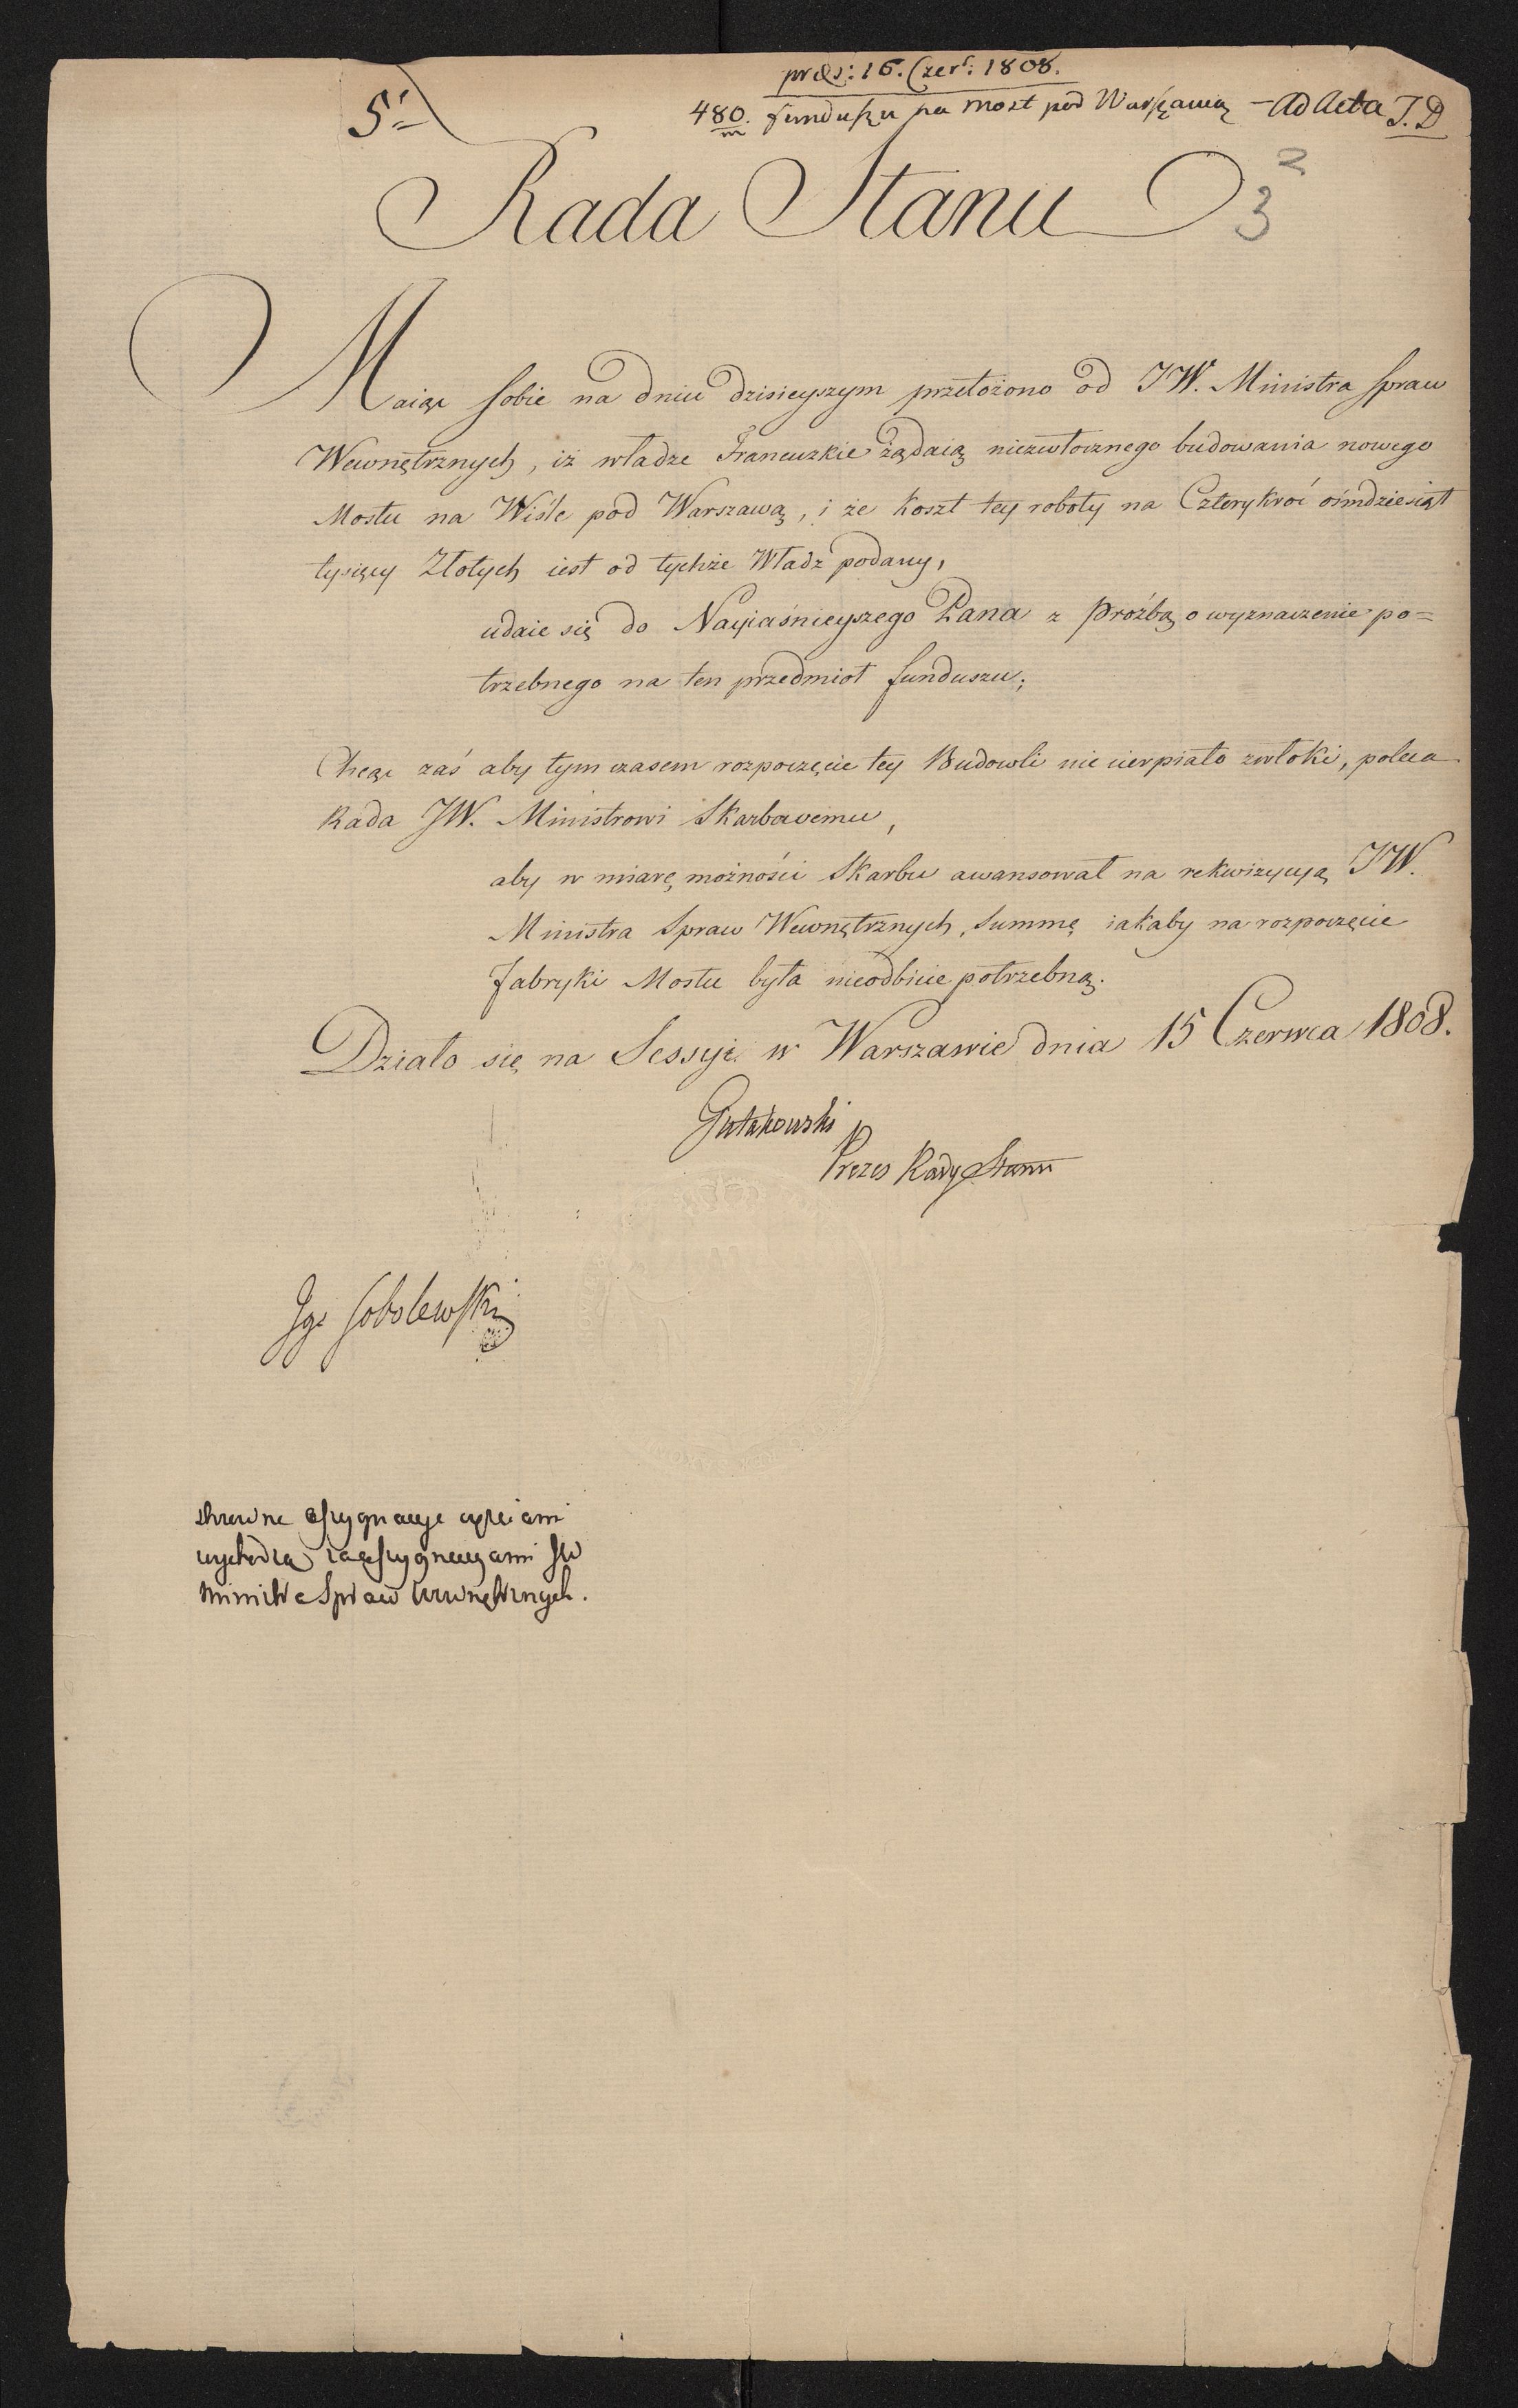 præs: 16. Czer: 1808.
5
480. funduszu na most pod Warszawą – Ad Acta J. D
m
2
3
Rada Stanu
Maiąc sobie na dniu dzisieyszym przełożono od JW. Ministra Spraw
Wewnętrznych, iż władze Francuzkie żądaią niezwłocznego budowania nowego
Mostu na Wiśle pod Warszawą, i że koszt tey roboty na Czterykroć ośmdziesiąt
tysięcy Złotych iest od tychże Władz podany,
udaie się do Nayiaśnieyszego Pana z proźbą o wyznaczenie po=
trzebnego na ten przedmiot funduszu;
Chcąc zaś aby tym czasem rozpoczęcie tey Budowli nie cierpiało zwłoki, poleca
Rada JW. Ministrowi Skarbowemu,
aby w miarę możności Skarbu awansował na rekwizycyą JW.
Ministra Spraw Wewnętrznych, Summę iakaby na rozpoczęcie
fabryki Mostu była nieodbicie potrzebną.
Działo się na Sessyi w Warszawie dnia 15 Czerwca 1808.
Gutakowski
Prezes Rady Stanu
Ign Sobolewski
asygnacye częściami
wychodzą za asygnacyami JW
Ministra Spraw Wewnętrznych.